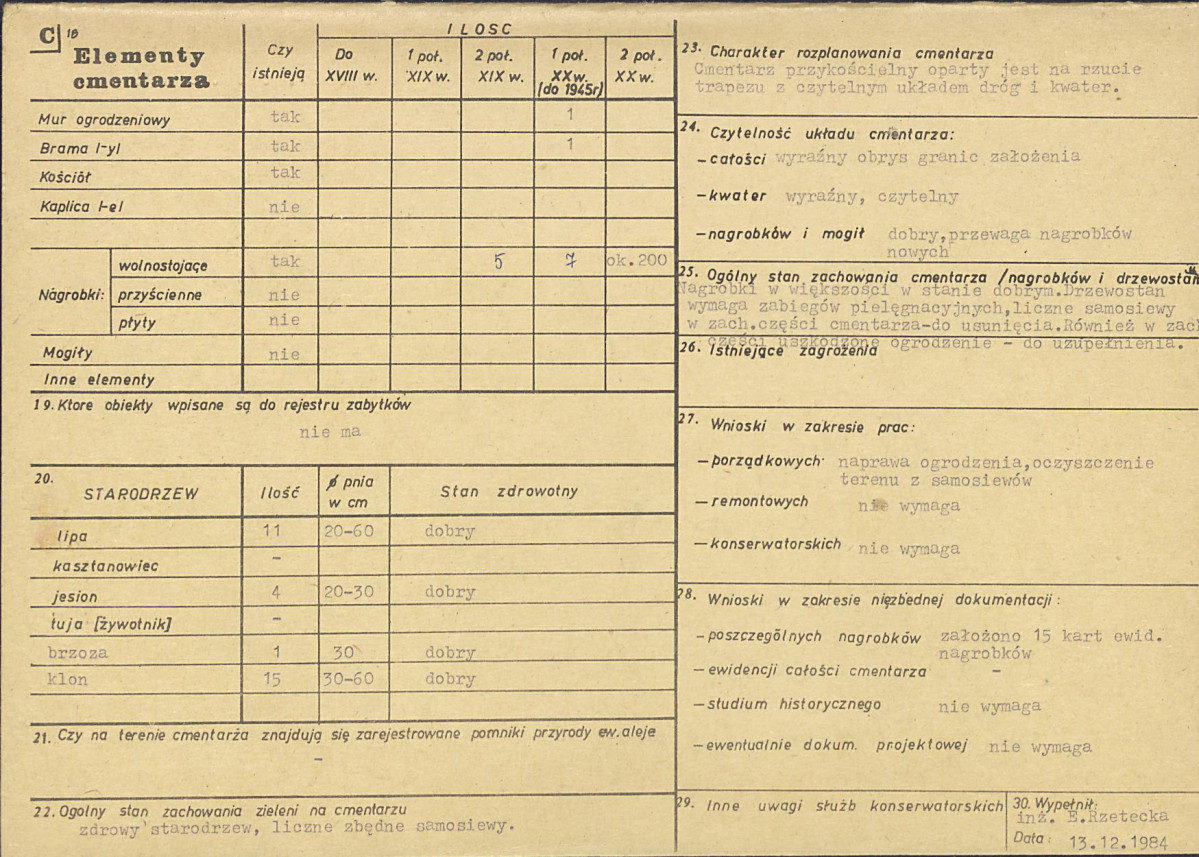 C 18
Elementy cmentarza
Czy istnieją
ILOSC
Do XVIII w.
1 poł. XIX w.
2 poł. XIX w.
1 poł. XX w. (do 1945r)
2 poł. XX w.
Mur ogrodzeniowy tak 1
Brama /-y/ tak 1
Kościół tak
Kaplica /-e/ nie
Nagrobki:
wolnostojące tak 5 7 ok.200
przyścienne nie
płyty nie
Mogiły nie
Inne elementy
19. Ktore obiekty wpisane są do rejestru zabytków
nie ma
20. STARODRZEW Ilość ø pnia w cm Stan zdrowotny
lipa 11 20-60 dobry
kasztanowiec -
jesion 4 20-30 dobry
tuja [żywotnik] -
brzoza 1 30 dobry
klon 15 30-60 dobry
21. Czy na terenie cmentarza znajdują się zarejestrowane pomniki przyrody ew. aleje
-
22. Ogolny stan zachowania zieleni na cmentarzu
zdrowy starodrzew, liczne zbędne samosiewy.
23. Charakter rozplanowania cmentarza
Cmentarz przykościelny oparty jest na rzucie
trapezu z czytelnym układem dróg i kwater.
24. Czytelność układu cmentarza:
- całości wyraźny obrys granic założenia
- kwater wyraźny, czytelny
- nagrobków i mogił dobry,przewaga nagrobków
nowych
25. Ogólny stan zachowania cmentarza /nagrobków i drzewostan
Nagrobki w większości w stanie dobrym.Drzewostan
wymaga zabiegów pielęgnacyjnych,liczne samosiewy
w zach.części cmentarza-do usunięcia.Również w zach
części uszkodzone ogrodzenie - do uzupełnienia.
26. Istniejące zagrożenia
27. Wnioski w zakresie prac:
- porządkowych naprawa ogrodzenia,oczyszczenie
terenu z samosiewów
- remontowych nie wymaga
- konserwatorskich nie wymaga
28. Wnioski w zakresie niezbędnej dokumentacji:
- poszczególnych nagrobków założono 15 kart ewid.
nagrobków
- ewidencji całości cmentarza -
- studium historycznego nie wymaga
- ewentualnie dokum. projektowej nie wymaga
29. Inne uwagi służb konserwatorskich
30. Wypełnił:
inż. E.Rzetecka
Data: 13.12.1984